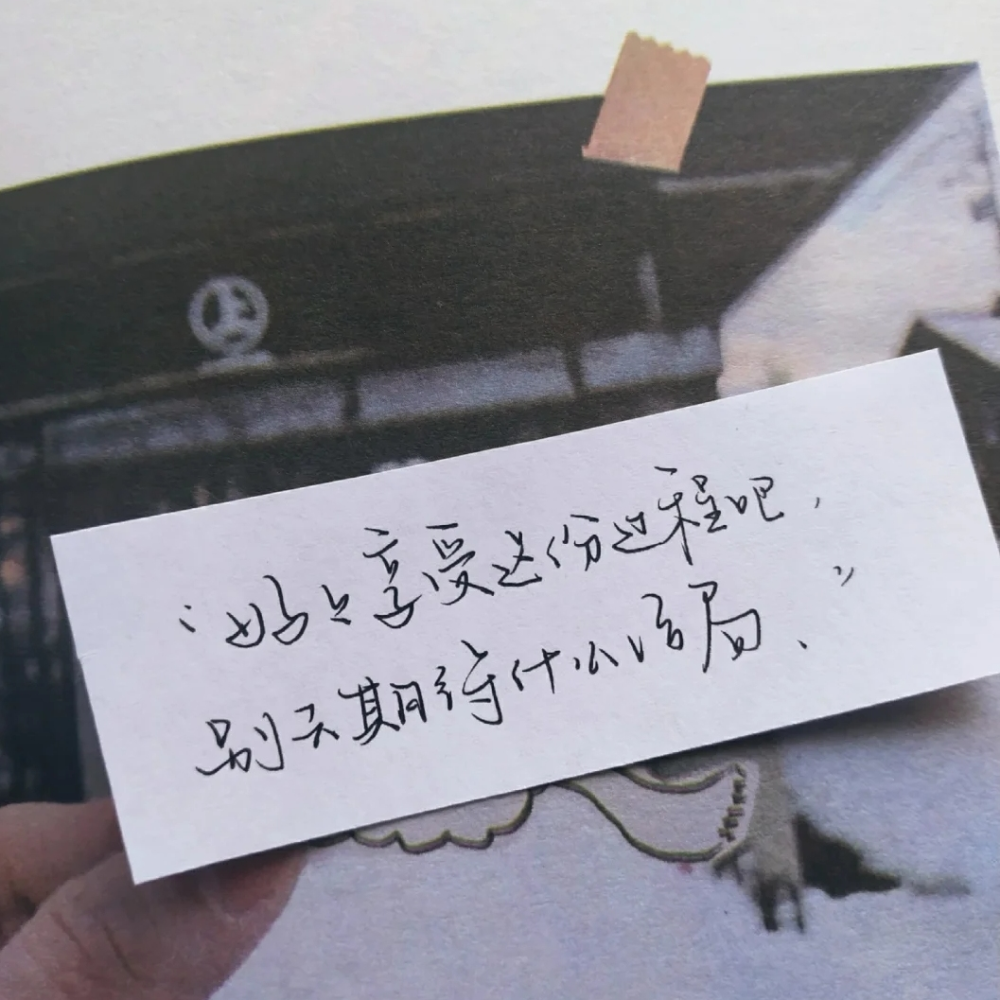 “好好享受这份过程吧，
别去期待什么结局、”